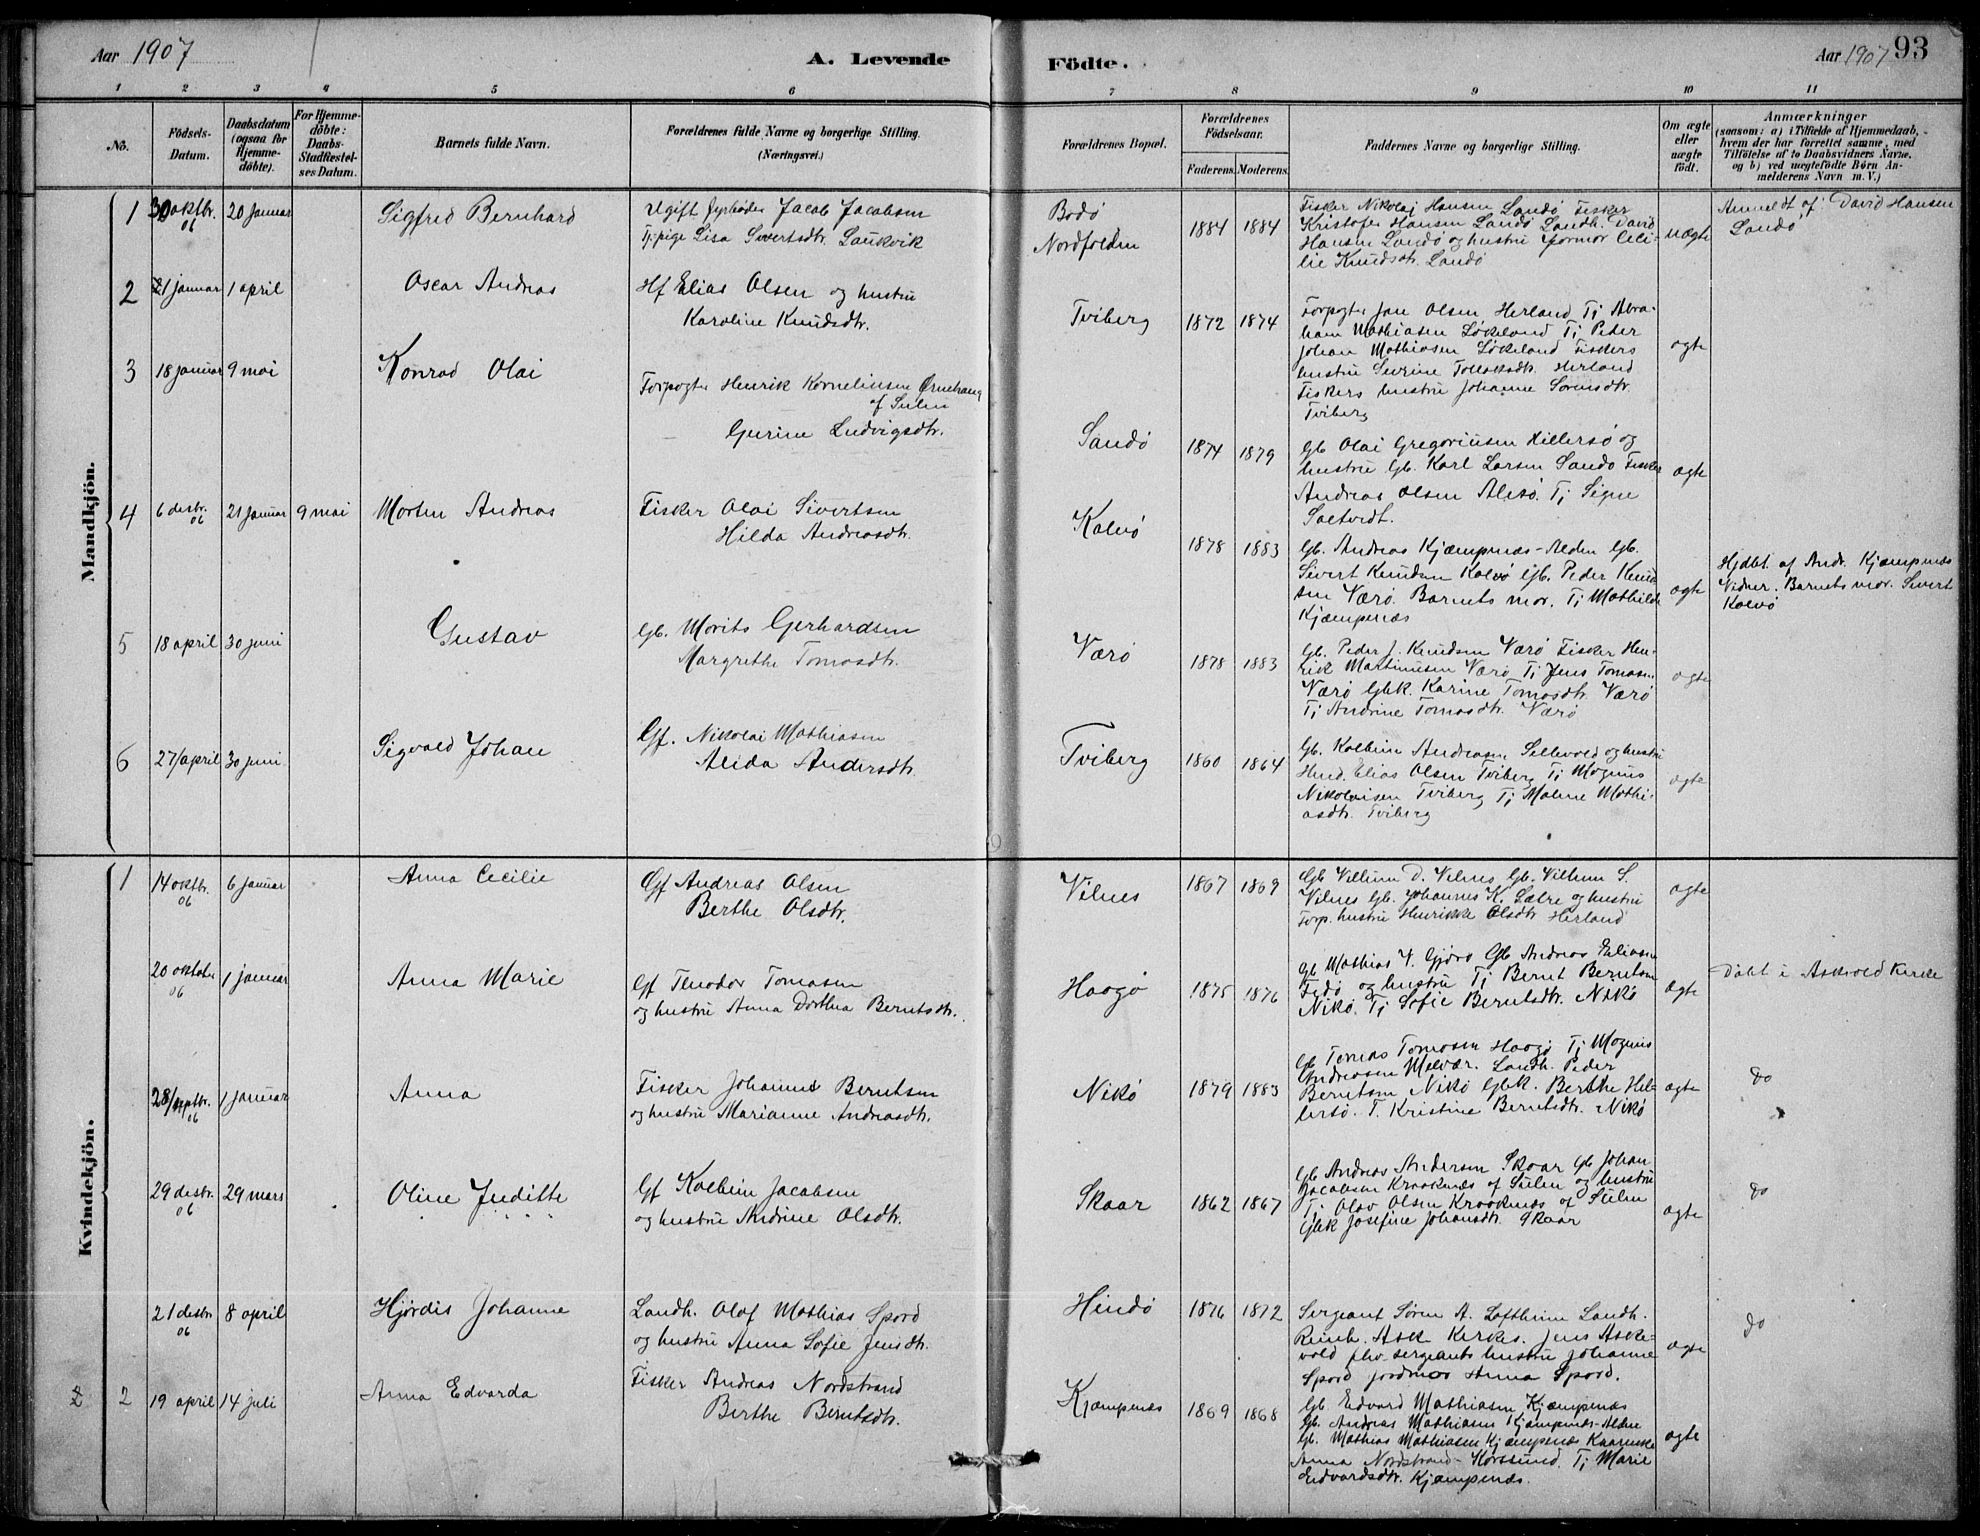 Aar 1907
A. Levende Födte.
Aar 1907 93
1 2 3 4 5 6 7 8 9 10 11
No.
Födsels-Datum.
Daabsdatum (ogsaa for Hjemme-döbte).
For Hjemme-döbte: Daabs-Stadfæstel-ses Datum.
Barnets fulde Navn.
Forældrenes fulde Navne og borgerlige Stilling. (Næringsvei.)
Forældrenes Bopæl.
Forældrenes Födselsaar.
Faderens. Moderens.
Faddernes Navne og borgerlige Stilling.
Om ægte eller uægte födt.
Anmærkninger
(saasom: a) i Tilfælde af Hjemmedaab,
hvem der har forrettet samme, med
Tilföielse af to Daabsvidners Navne,
og b) ved uægtefödte Börn An-
melderens Navn m. V.)
Mandkjön.
1 30 oktbr. 06 20 januar Sigfred Bernhard
Ugift fyrbøder Jacob Jacobsen
Tj. pige Lisa Sivertsdtr. Laukvik
Bodø
Nordfolden
1884 1884
Fisker Nikolai Hansen Sandø Fisker
Kristofer Hansen Sandø Landh. David
Hansen Sandø og hustru Gjormor Ceci-
lie Knudsdtr. Sandø
uægte
Anmeldt af David Hansen
Sandø
2 21 januar 1 april Oscar Andreas
Hf Elias Olsen og hustru
Karoline Knudsdtr.
Tviberg 1872 1874
Forpagter Jan Olsen Herland Tj Abra-
ham Mathiasen Løkeland Tj Peder
Johan Mathiasen Løkeland Fiskers
hustru Severine Tollaksdtr. Herland
Fiskers hustru Johanne Sørensdtr
Tviberg
ægte
3 18 januar 9 mai Konrad Olai
Forpagter Henrik Kornelinsen Ørnehaug
af Sulen
Gurine Ludvigsdtr.
Sandø 1874 1879
Gb Olai Gregoriusen Hillersø og
hustru Gb. Karl Larsen Sandø Fisker
Andreas Olsen Alesø. Tj Signe
Saltvedt.
ægte
4 6 desbr. 06 21 januar 9 mai Morten Andreas
Fisker Olai Sivertsen
Hilda Andreasdtr.
Kalvø 1878 1883
Gb. Andreas Kjæmpenæs-Alden Gb.
Sivert Knudsen Kalvø Gb. Peder Knud-
sen Værø. Barnets mor. Tj Mathilde
Kjæmpenæs
ægte
Hjdbt. af Andr. Kjæmpenæs
Vidner. Barnets mor. Sivert
Kalvø
5 18 april 30 juni Gustav
Gb. Morits Gerhardsen
Margrethe Tomasdtr.
Værø 1878 1883
Gb. Peder J. Knudsen Værø Fisker Hen-
rik Martinusen Værø Tj Jens Tomasen
Værø Gbk. Karine Tomasdtr. Værø
Tj Andrine Tomasdtr. Værø
ægte
6 27/april 30 juni Sigvald Johan
Gf. Nikolai Mathiasen
Alida Andersdtr.
Tviberg 1860 1864
Gb. Kolbein Andreasen Sellevold og hustru
Husd. Elias Olsen Tviberg Tj Magnus
Nikolaisen Tviberg Tj Malene Mathi-
asdtr. Tviberg
ægte
Kvindekjön.
1 14 oktbr. 06 6 januar Anna Cecilie
Gf Andreas Olsen
Berthe Olsdtr.
Vilnes 1867 1869
Gb Villum D. Vilnes Gb. Vilhelm S.
Vilnes Gb. Johannes K. Sælre og hustru
Forp. hustru Henrikke Olsdtr Herland
ægte
20 oktober 06 1 januar Anna Marie
Gf Theodor Tomasen
og hustru Anna Dorthea Berntsdtr.
Haagø 1875 1876
Gb Mathias V. Gjøro Gb Andreas Eliasen
Fedø og hustru Tj Bernt Berntsen
Nikø. Tj Sofie Berntsdtr. Nikø
ægte
Døbt i Askvold kirke
28/septbr. 06 1 januar Anna
Fisker Johannes Berntsen
og hustru Marianne Andreasdtr.
Nikø 1879 1883
Gb Tomas Tomasen Haagø Tj Magnus
Andreasen Melvær. Landh. Peder
Berntsen Nikø Gbk. Berthe Hil-
lersø. T. Kristine Berntsdtr. Nikø
ægte
do
29 desbr. 06 29 mars Oline Juditte
Gf Kolbein Jacobsen
og hustru Andrine Olsdtr.
Skaar 1862 1867
Gb Andreas Andersen Skaar Gb Johan
Jacobsen Kraakenæs af Sulen og hustru
Tj Olav Olsen Kraakenæs af Sulen
Gbk Josefine Johansdtr. Skaar
ægte
do
21 desbr 06 8 april Hjørdis Johanne
Landh. Olaf Mathias Spord
og hustru Anna Sofie Jensdtr.
Hindø 1876 1872
Sergeant Søren A. Loftheim Landh.
Reinh. Ask Kirkes. Jens Aske-
vold fhv. sergeants hustru Johanne
Spord jordmor Anna Spord.
ægte
do
2 2 19 april 14 juli Anna Edvarda
Fisker Andreas Nordstrand
Berthe Berntsdtr.
Kjæmpenæs 1869 1868
Gb. Edvard Mathiasen Kjæmpenæs
Gb. Andreas Mathiasen Kjæmpenæs-Alden
Gb. Mathias Mathiasen Kjæmpenæs
Anna Nordstrand-Korssund. Tj Marie
Edvardsdtr. Kjæmpenæs.
ægte